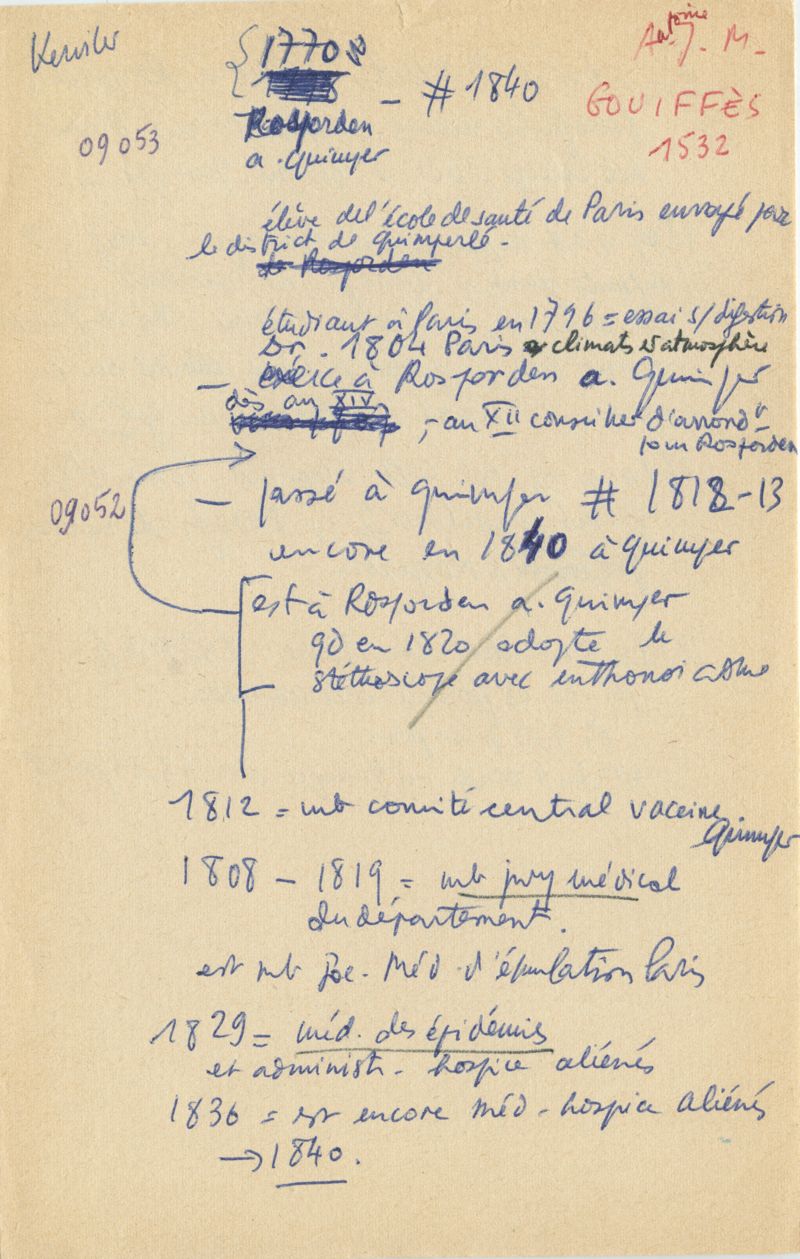 Kerviler
Antoine
A. J. M.
GOUIFFÈS
1532
1770
- # 1840
Rosporden
a. Quimper
09053
élève de l'école de santé de Paris envoyé par
le district de Quimperlé -
de Rosporden
étudiant à Paris en 1796 = essai s/ digestion
Dr. 1804 Paris climats et atmosphère
- exerce à Rosporden a. Quimper
dès an XIV
, - an XII conseiller d'arrondt -
pour Rosporden
09052
- passé à Quimper # 1812-13
encore en 1840 à Quimper
est à Rosporden a. Quimper
qd en 1820 adopte le
stéthoscope avec enthousiasme
1812 = mb comité central vaccine
Quimper
1808 - 1819 = mb jury médical
du département.
est mb Soc. Méd. d'émulation Paris
1829 = méd. des épidémies
et administr. hospice aliénés
1836 = est encore méd - hospice aliénés
→ 1840.